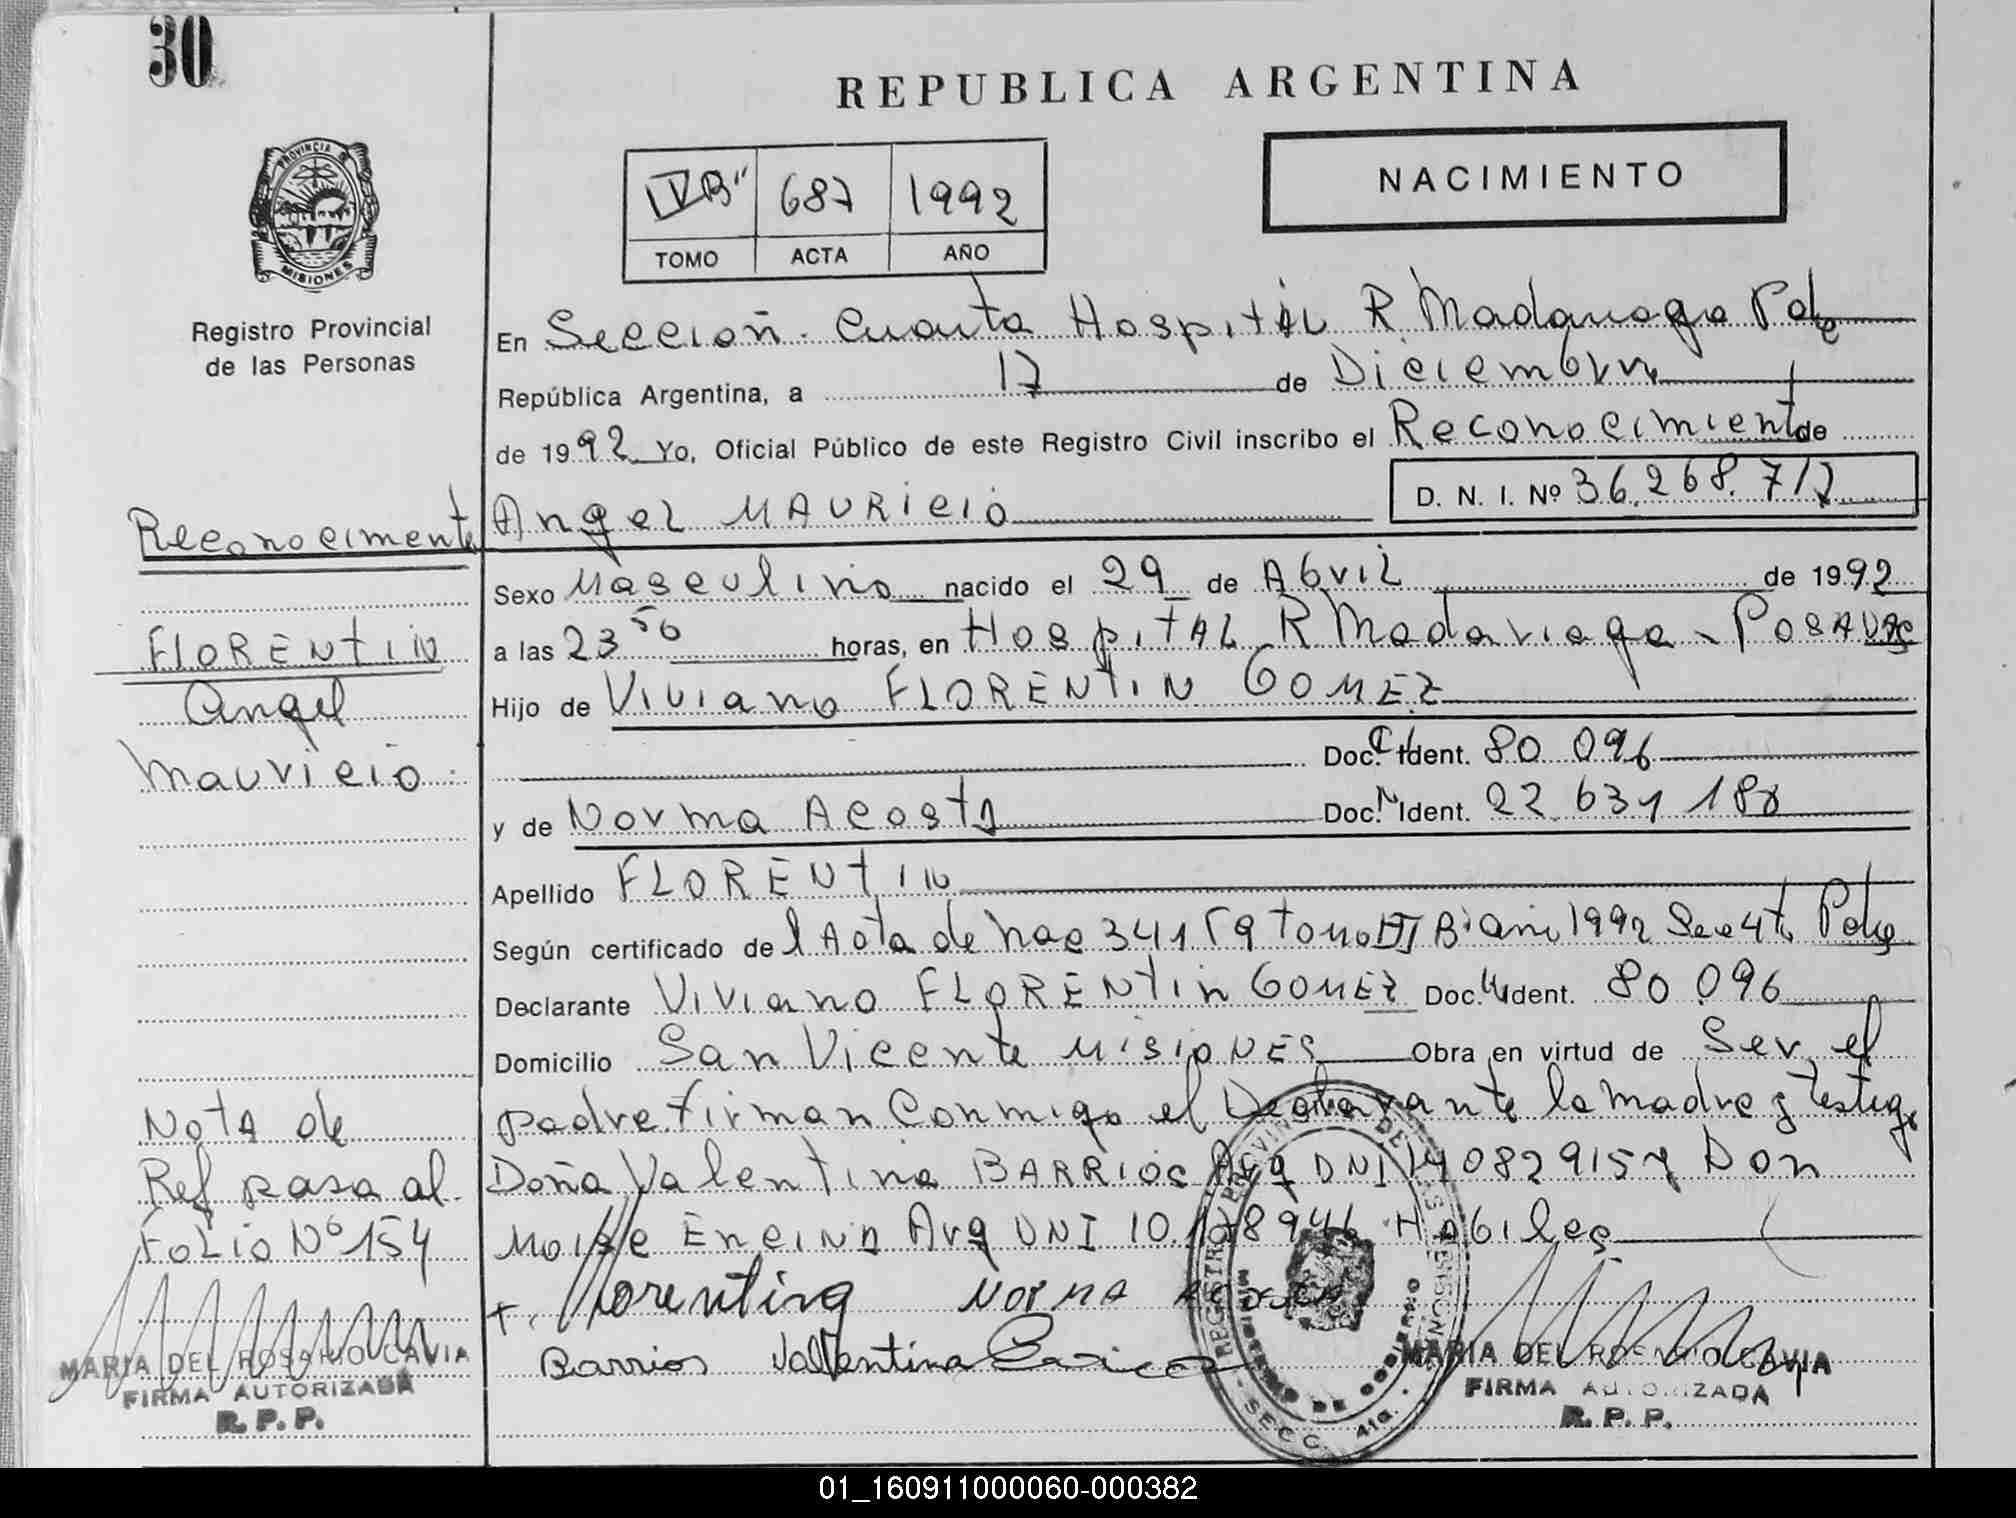 30
REPUBLICA ARGENTINA
NACIMIENTO
IV B" 687 1992
TOMO ACTA AÑO
PROVINCIA DE MISIONES
Registro Provincial
de las Personas
En Sección Cuarta Hospital R Madariaga Pdas
República Argentina, a 17 de Diciembre
de 1992 Yo, Oficial Público de este Registro Civil inscribo el Reconocimiento de
Angel MAURICIO D. N. I. Nº 36.268.717
Reconocimiento
Sexo Masculino nacido el 29 de Abril de 1992
a las 23 50 horas, en Hospital R Madariaga - Posadas
FLORENTIN
Hijo de Viviano FLORENTIN GOMEZ
Angel
Doc. Ident. 80 096
Mauricio
y de Norma Acosta Doc. Ident. 22 631 188
Apellido FLORENTIN
Según certificado de l Acta de nac 341 Tomo III B Año 1992 Sec 4ta
Declarante Viviano FLORENTIN GOMEZ Doc. Ident. 80 096
Domicilio San Vicente MISIONES Obra en virtud de Ser el
Nota de
padre Firman Conmigo el Declarante la madre y testigo
Ref pasa al
Doña Valentina BARRIOS Arg DNI 14082915 y Don
Folio Nº 154
Encina Arg DNI Habiles
Florentin NORMA Acosta
Barrios Vallentina
MARIA DEL ROSARIO CAVIA
FIRMA AUTORIZADA
R. P. P.
REGISTRO PROVINCIAL DE LAS PERSONAS
MINISTERIO DE GOBIERNO
SECC. 4ta.
MARIA DEL ROSARIO CAVIA
FIRMA AUTORIZADA
R. P. P.
01_160911000060-000382